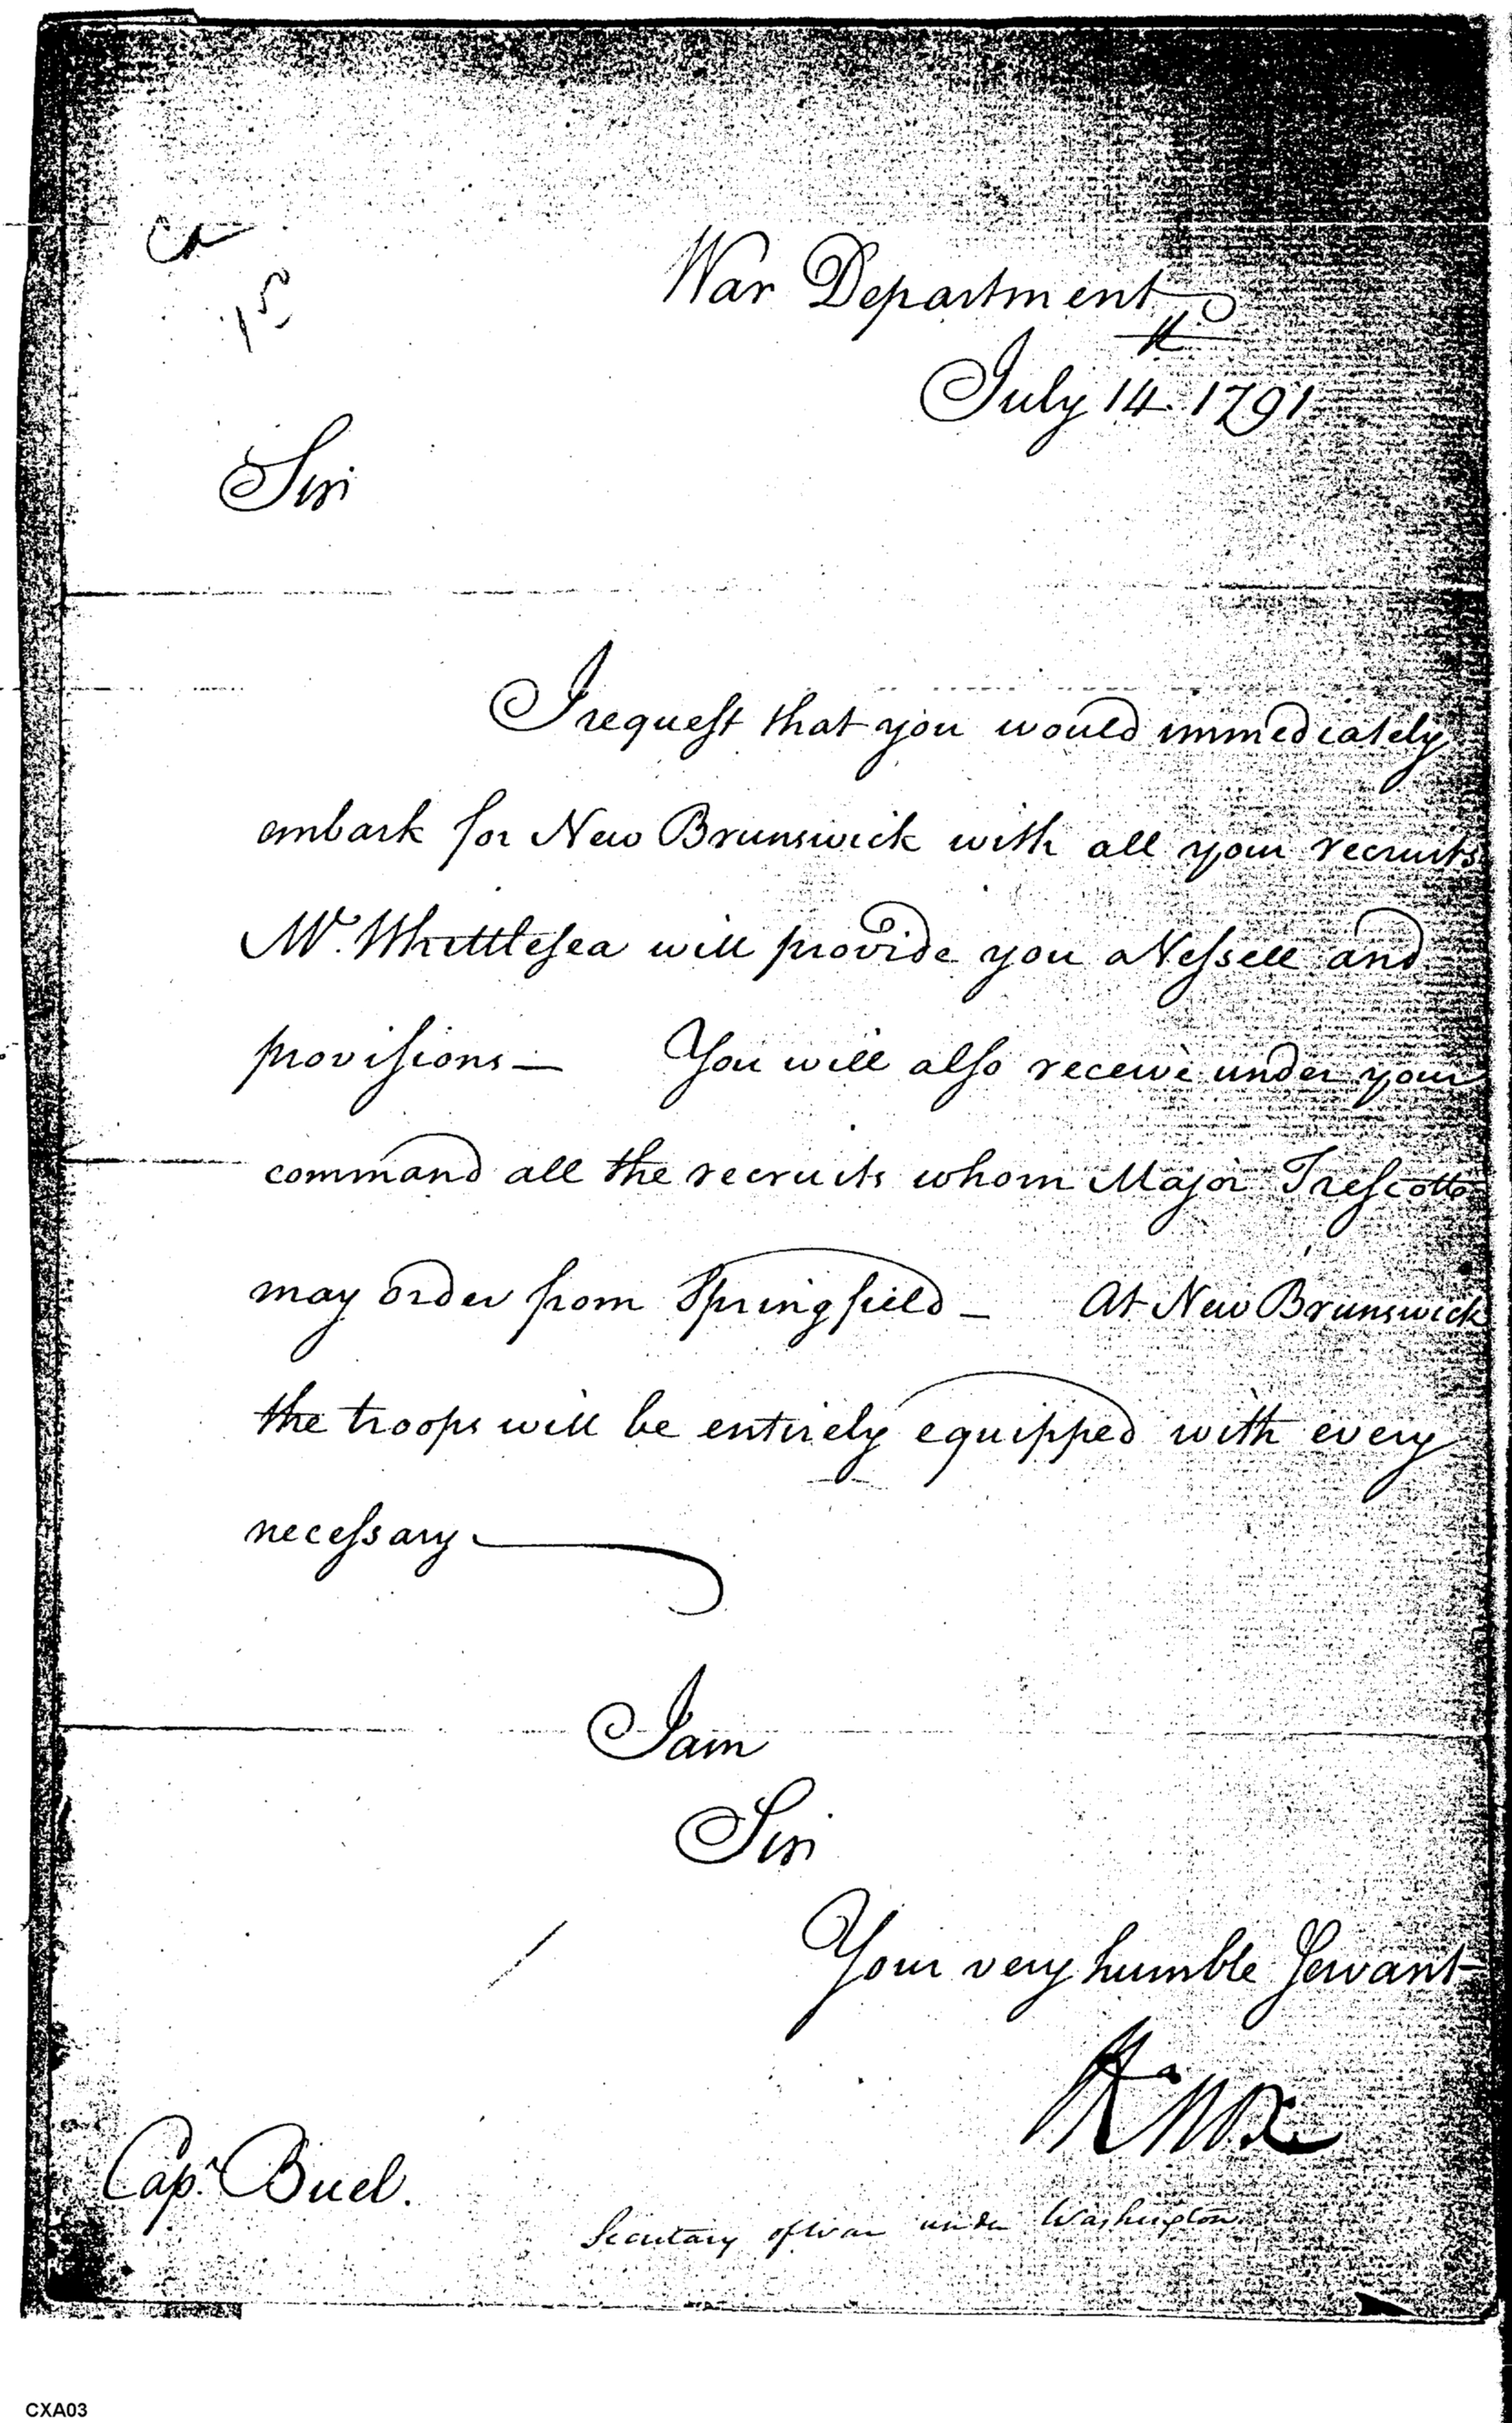 Ca
15
War Department
July 14 1791
Sir
I request that you would immediately
embark for New Brunswick with all your recruits
Mr. Whittlesea will provide you a Vessell and
provisions — You will also receive under your
command all the recruits whom Major Trescott
may order from Springfield — At New Brunswick
the troops will be entirely equipped with every
necessary
I am
Sir
Your very humble Servant
HKnox
Capt. Buel.
Secretary of War under Washington
CXA03